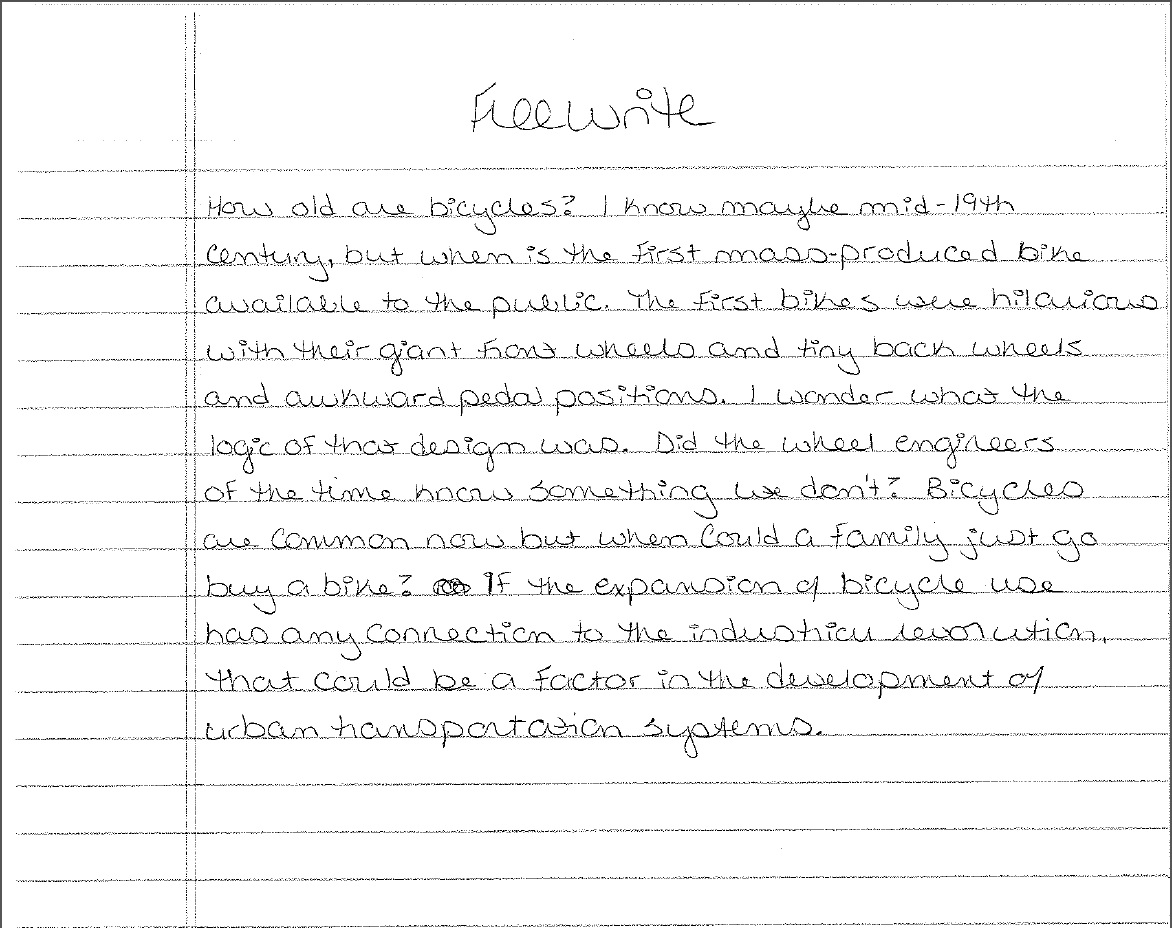 Freewrite
How old are bicycles? I know maybe mid-19th
Century, but when is the first mass-produced bike
available to the public. The first bikes were hilarious
with their giant front wheels and tiny back wheels
and awkward pedal positions. I wonder what the
logic of that design was. Did the wheel engineers
of the time know something we don't? Bicycles
are common now but when could a family just go
buy a bike? If the expansion of bicycle use
has any connection to the industrial revolution,
that could be a factor in the development of
urban transportation systems.